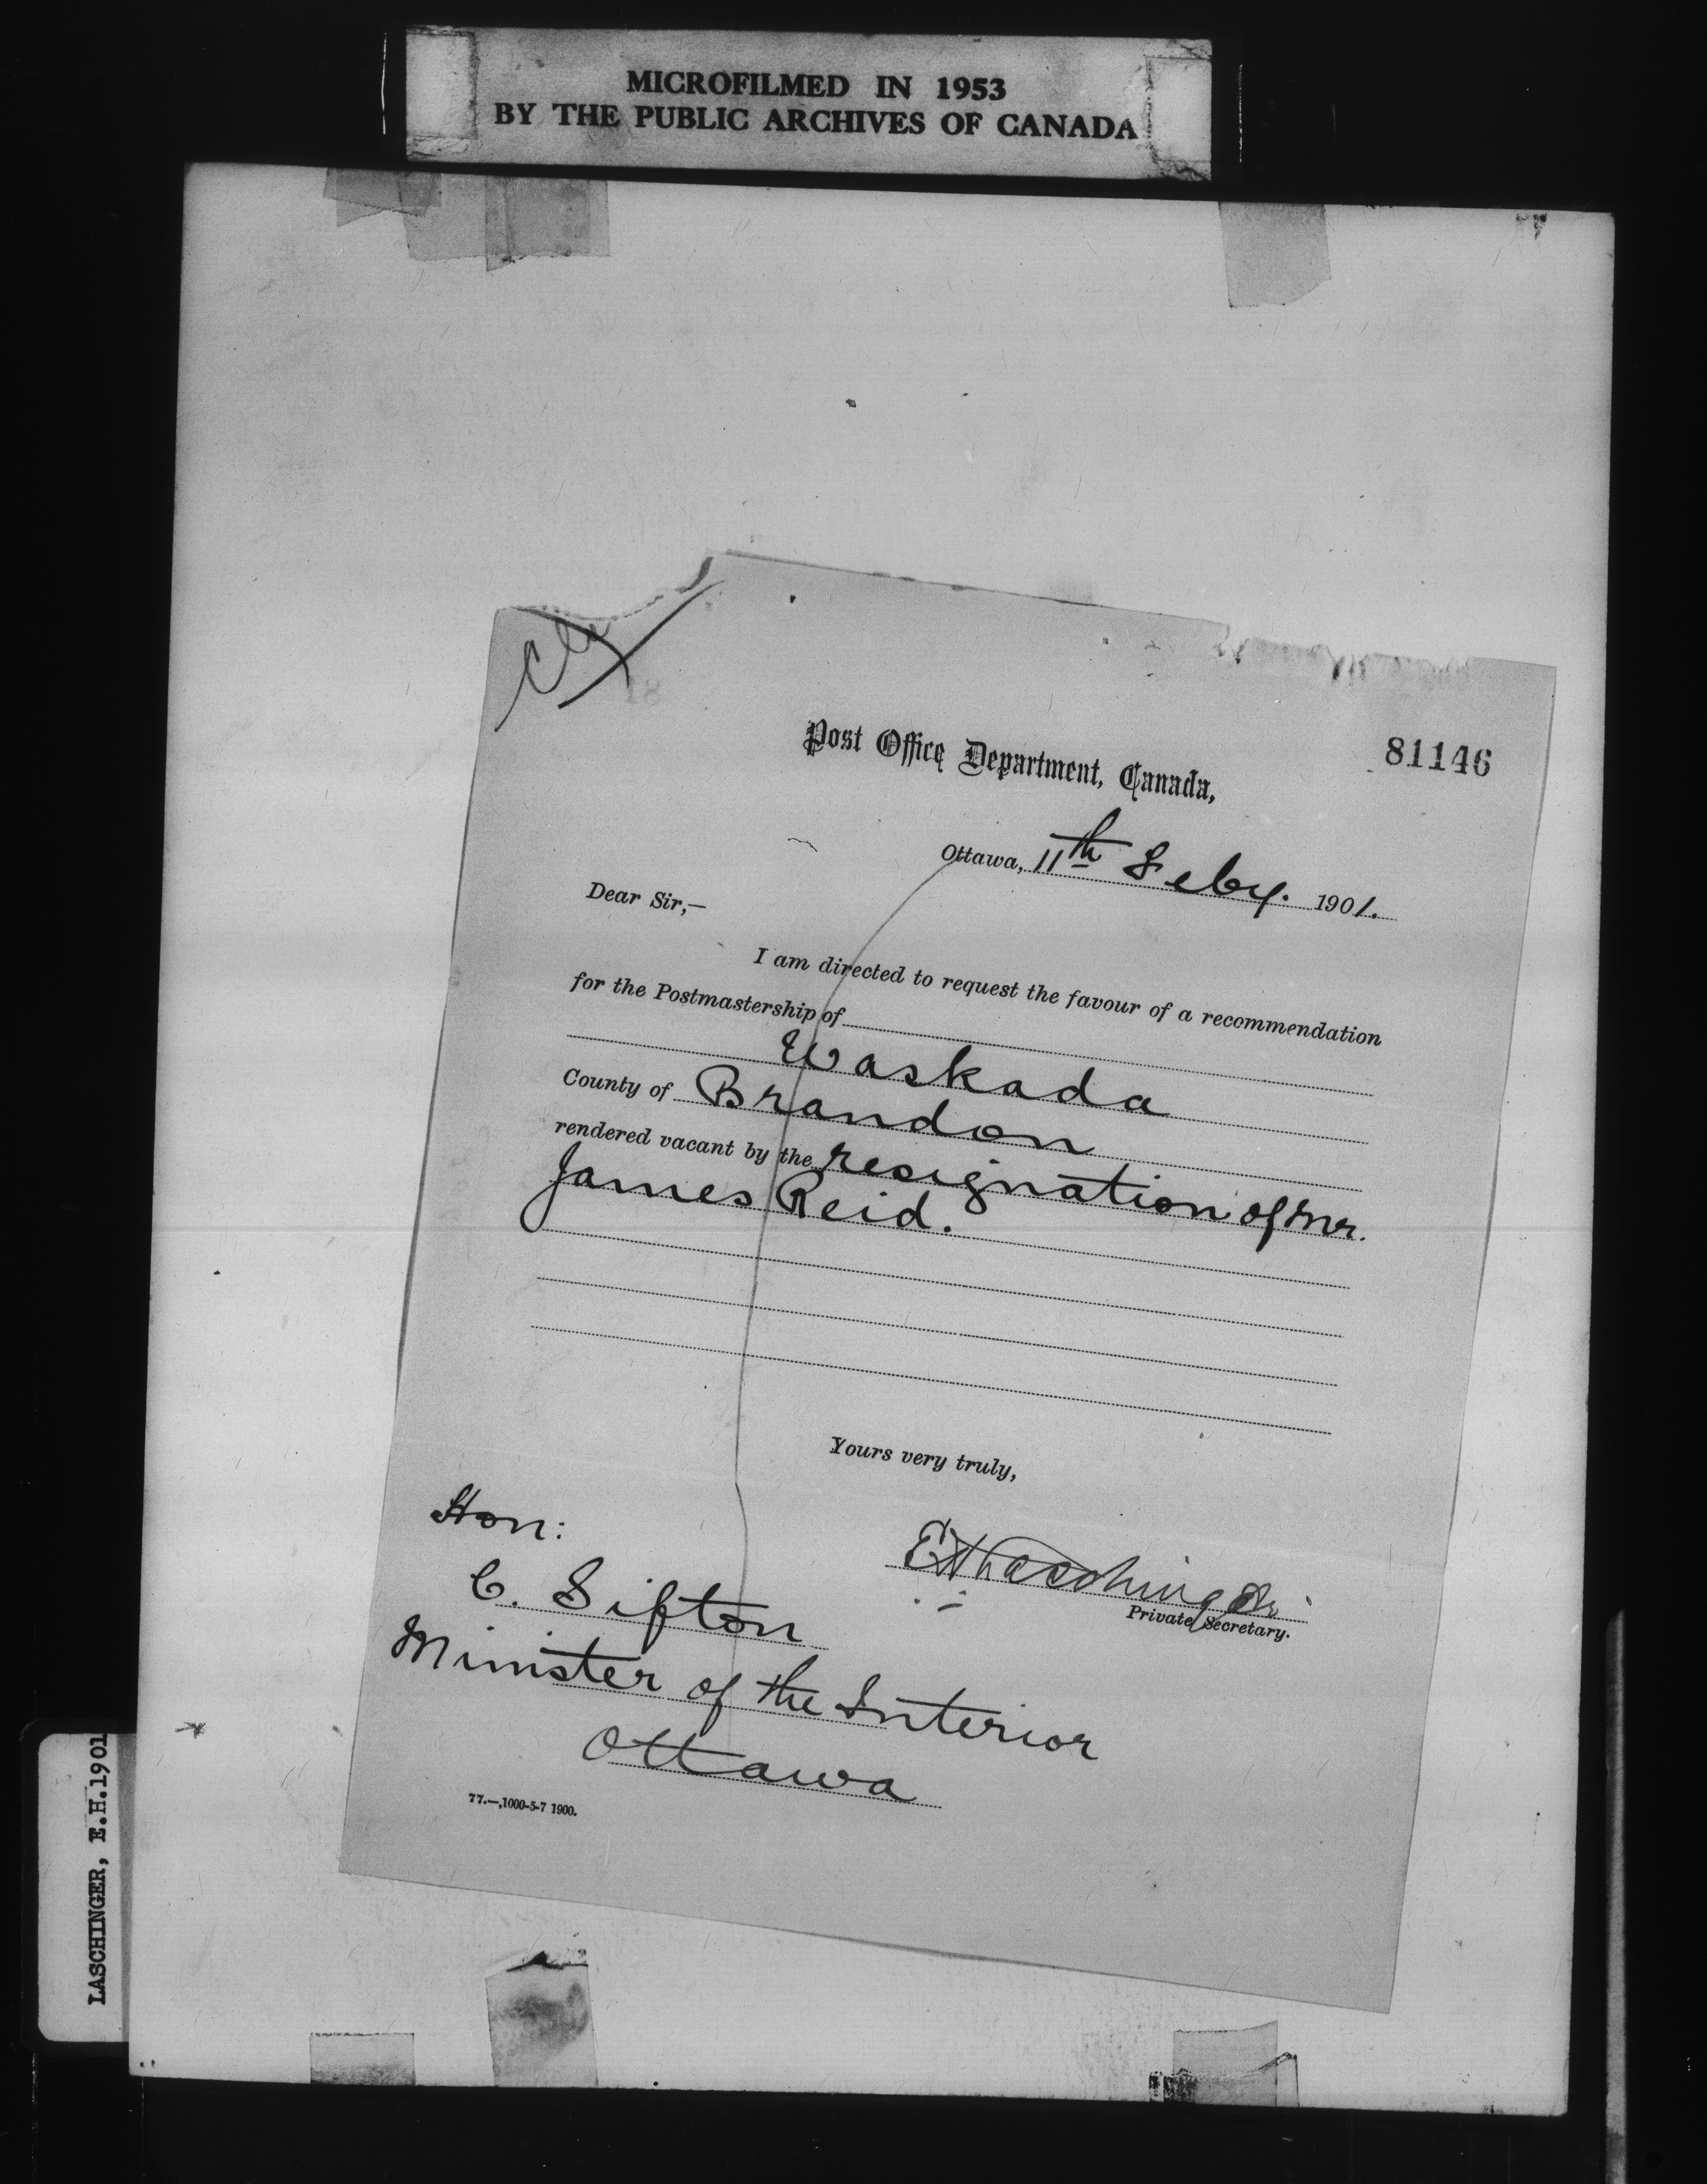 MICROFILMED IN 1953
BY THE PUBLIC ARCHIVES OF CANADA
81146
Post Office Department, Canada,
Ottawa, 11th Feby. 1901.
Dear Sir,—
I am directed to request the favour of a recommendation
for the Postmastership of
Waskada
County of Brandon
rendered vacant by the resignation of Mr.
James Reid.
Yours very truly,
EHLaschinger
Private Secretary.
Hon:
C. Sifton
Minister of the Interior
Ottawa
77.—,1000-5-7 1900.
LASCHINGER, E.H.1901